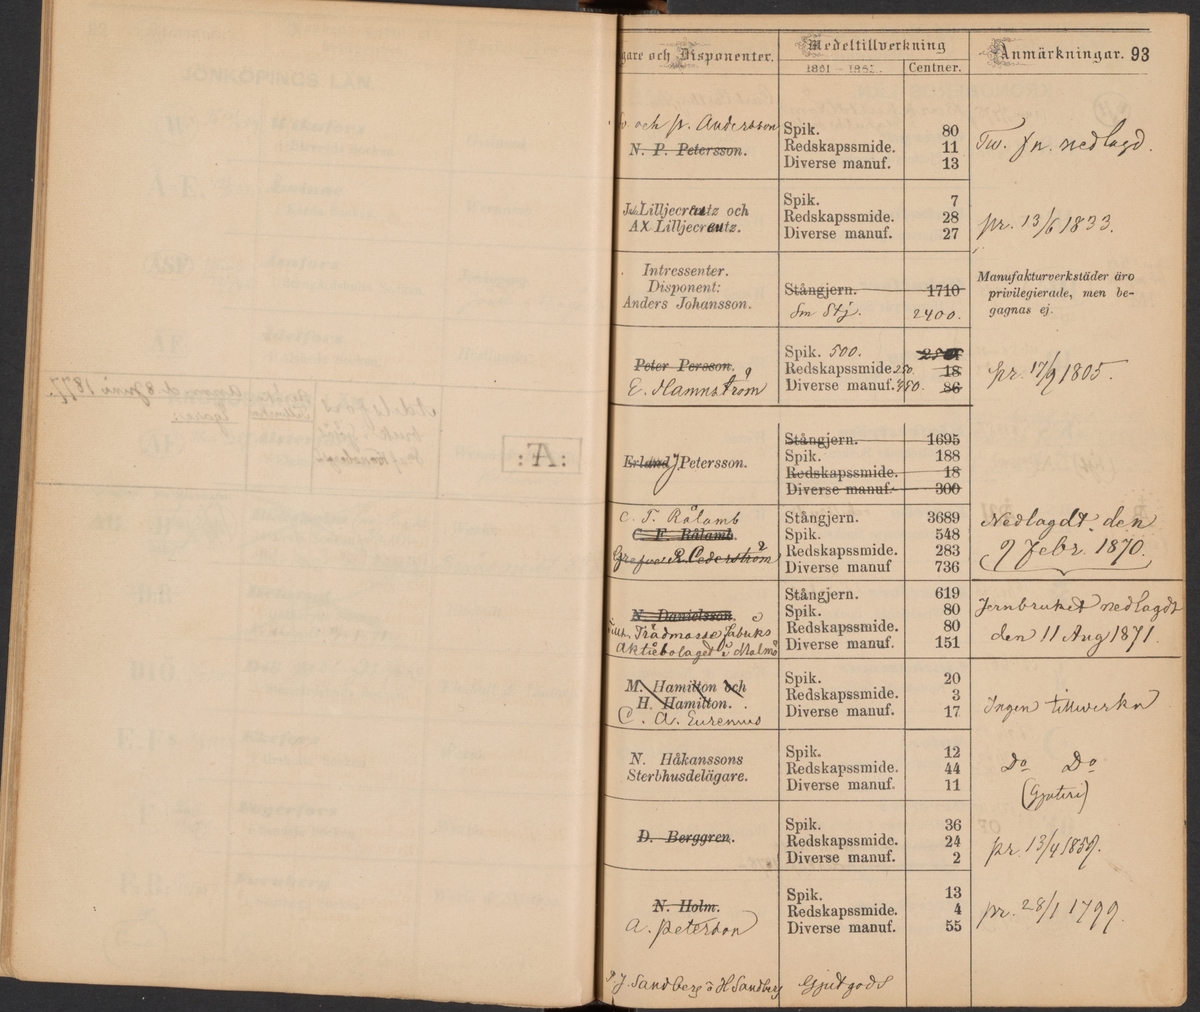 gare och Disponenter.
Medeltillverkning
1861–1863.
Centner.
Anmärkningar. 93
och p. Andersson
N. P. Petersson.
Spik. 80
Redskapssmide. 11
Diverse manuf. 13
Tw. fn. nedlagd.
Lilljecreutz och
AX Lilljecreutz.
Spik. 7
Redskapssmide. 28
Diverse manuf. 27
pr. 13/6 1833.
Intressenter.
Disponent:
Anders Johansson.
Stångjern. 1710
Sm Stj. 2400.
Manufakturverkstäder äro
privilegierade, men be-
gagnas ej.
Peter Persson.
E. Hamnström
Spik. 500.
Redskapssmide. 250. 18
Diverse manuf. 750. 86
pr. 17/9 1805.
Erland J Petersson.
Stångjern. 1695
Spik. 188
Redskapssmide. 18
Diverse manuf. 300
C. T. Rålamb
C. F. Rålamb.
Grefve R Cederström
Stångjern. 3689
Spik. 548
Redskapssmide. 283
Diverse manuf 736
Nedlagdt. den
9 Febr. 1870.
N. Danielsson.
Trädmasse fabriks
Aktiebolaget i Malmö
Stångjern. 619
Spik. 80
Redskapssmide. 80
Diverse manuf. 151
Jernbruket nedlagdt
den 11 Aug 1871.
M. Hamilton och
H. Hamilton.
C. A. Eurenius
Spik. 20
Redskapssmide. 3
Diverse manuf. 17
Ingen tillwerkn
N. Håkanssons
Sterbhusdelägare.
Spik. 12
Redskapssmide. 44
Diverse manuf. 11
Do Do
(Gjuteri)
D. Berggren.
Spik. 36
Redskapssmide. 24
Diverse manuf. 2
pr. 13/4 1859.
N. Holm.
A. Peterson
Spik. 13
Redskapssmide. 4
Diverse manuf. 55
pr. 28/1 1799.
P. J. Sandberg o H Sandberg
Gjutgods